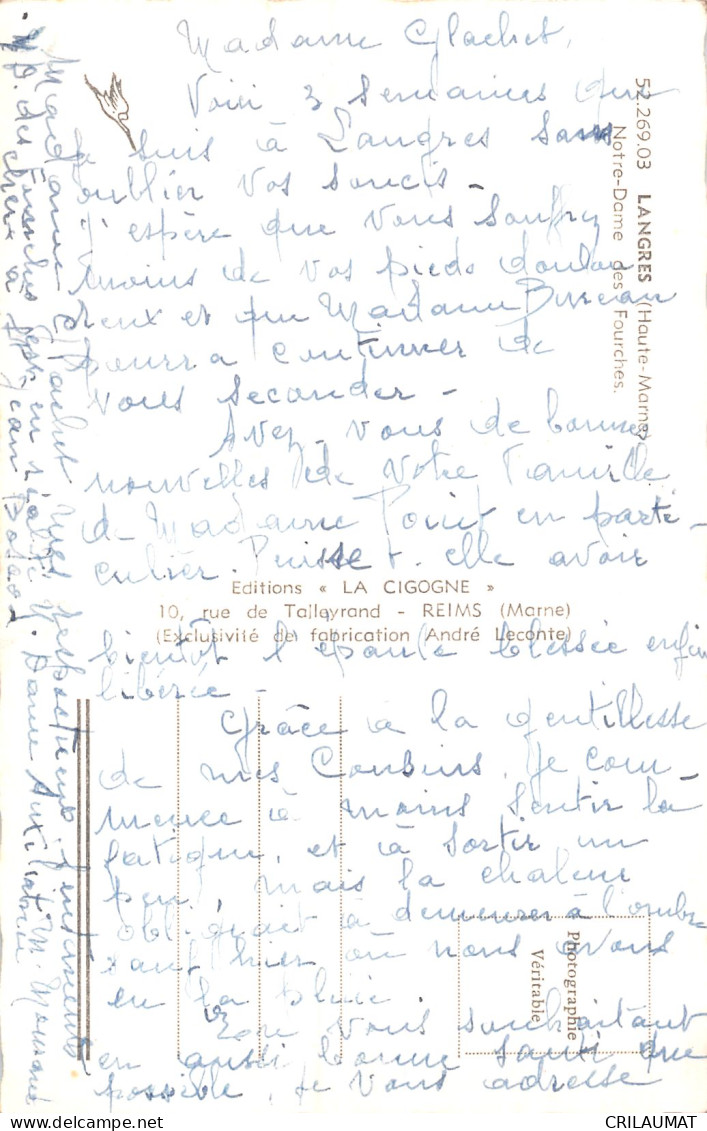 Madame Glachet,
Voici 3 semaines que
je suis à Langres sans
oublier vos soucis -
J'espère que vous souffrez
moins de vos pieds doulou
reux et que Madame
pourra continuer de
vous seconder -
Avez-vous de bonnes
nouvelles de votre famille
de Madame en parti-
culier. Puisse-t-elle avoir
bientôt l'épaule blessée enfin
libérée -
Grâce à la gentillesse
de mes Cousins, je com-
mence à moins sentir la
fatigue, et à sortir un
peu, mais la chaleur
obligeait à demeurer à l'ombre
sauf hier où nous avons
eu la pluie
vous souhaitant
en aussi bonne santé que
possible, je vous adresse
Madame Glachet mes respectueux sentiments
M.
N.D. des Fourches est en réalité N. Dame Auxiliatrice
chère à Jean Bosco
52.269.03 LANGRES (Haute-Marne)
Notre-Dame des Fourches.
Editions « LA CIGOGNE »
10, rue de Talleyrand - REIMS (Marne)
(Exclusivité de fabrication André Leconte)
Photographie
Véritable
CRILAUMAT